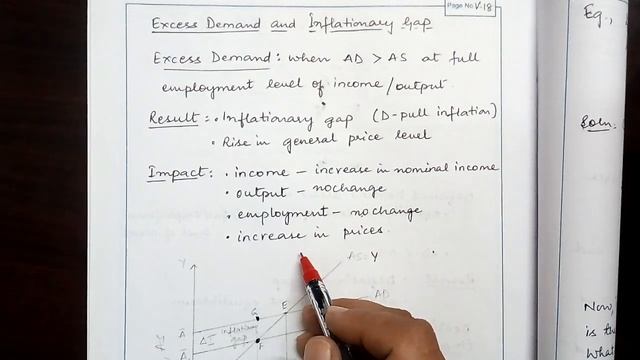 Page No V-18
Excess Demand and Inflationary Gap
Excess Demand: when AD > AS at full
employment level of income/output.
Result: • Inflationary gap (D-pull inflation)
• Rise in general price level
Impact: • income – increase in nominal income
• output – nochange
• employment – no change
• increase in prices
Y
AS=Y
AD
G
E
ΔI
inflationary
gap
F
Ā
Eg.,
Soln.
Now,
is th
What